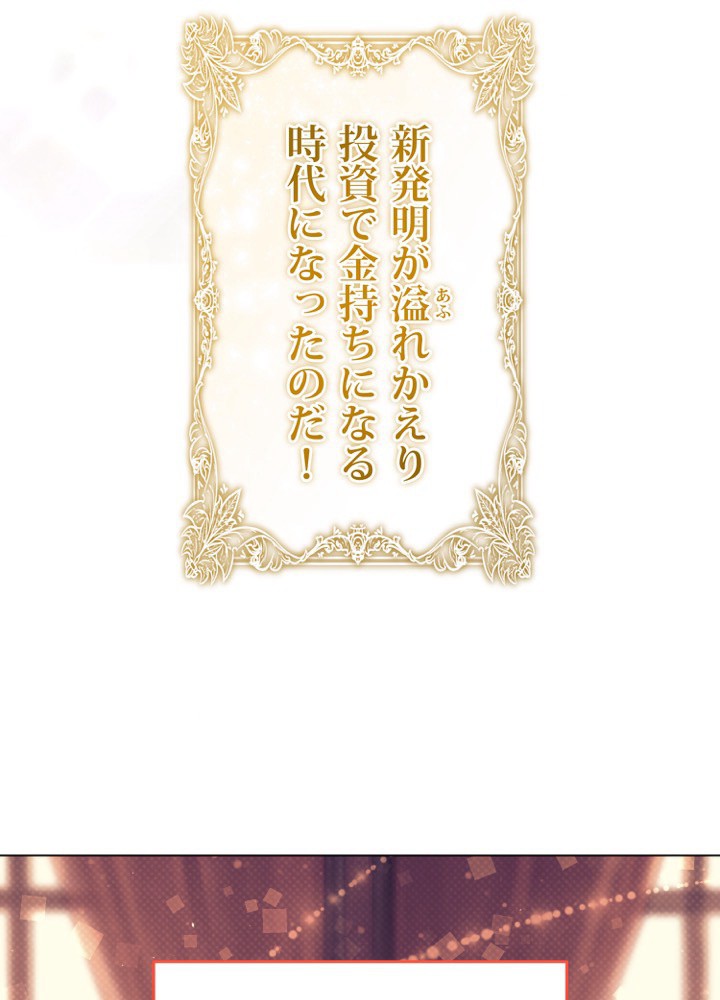 新発明が溢れかえり
あふ
投資で金持ちになる
時代になったのだ！